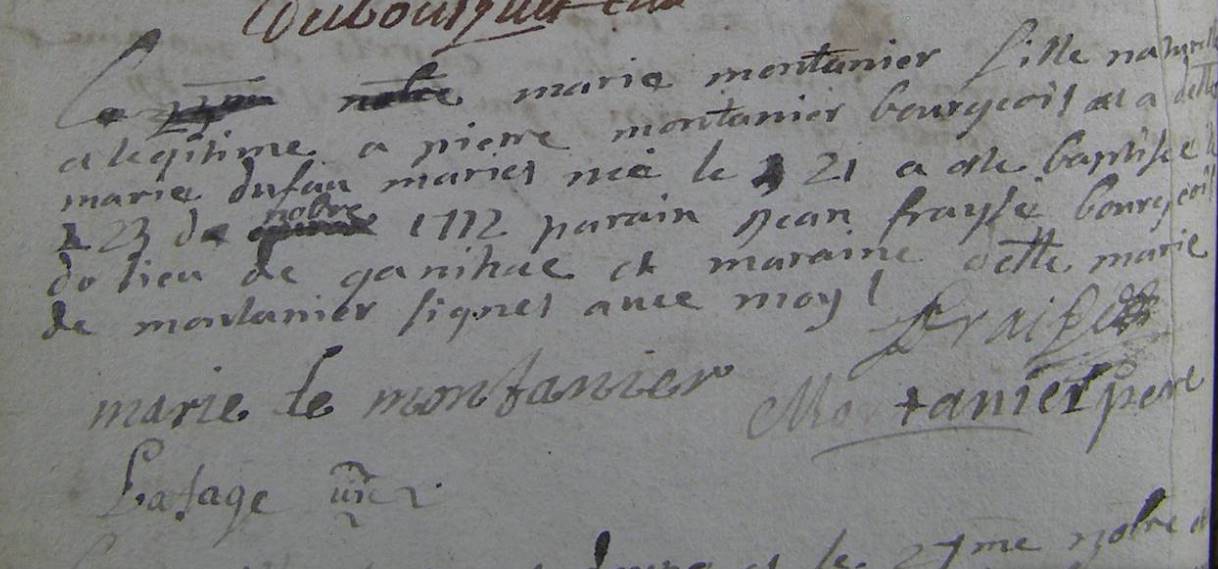 Dubousquet
marie montanier fille naturelle
a legitime a pierre montanier bourgeois et a delle
marie dufau maries née le 21 a ete baptisee le
23 de nobre 1772 parain jean fraysse bourgeois
do lieu de ganihac et maraine delle marie
de montanier signes avec moy
Fraisse
marie de montanier Montanier pere
Lafage vic
et le 27me nobre